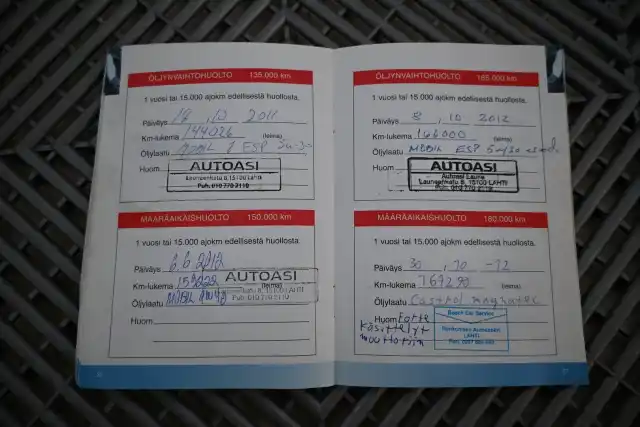 ÖLJYNVAIHTOHUOLTO 135.000 km
1 vuosi tai 15.000 ajokm edellisestä huollosta.
Päiväys 18 , 10 2011
Km-lukema 144026 (leima)
Öljylaatu MOBIL 1 ESP 5w-30
Huom
AUTOASI
Launeenkatu 8, 15100 LAHTI
Puh. 010 770 2110
MÄÄRÄAIKAISHUOLTO 150.000 km
1 vuosi tai 15.000 ajokm edellisestä huollosta.
Päiväys 6.6 2012
Km-lukema (leima)
Öljylaatu MOBIL
Huom
AUTOASI
Launeenkatu 8, 15100 LAHTI
Puh. 010 770 2110
ÖLJYNVAIHTOHUOLTO 165.000 km
1 vuosi tai 15.000 ajokm edellisestä huollosta.
Päiväys 8 , 10 2012
Km-lukema 166000 (leima)
Öljylaatu MOBIL ESP 5w-30
Huom
AUTOASI
Autoasi Laune
Launeenkatu 8, 15100 LAHTI
Puh. 010 770 2110
MÄÄRÄAIKAISHUOLTO 180.000 km
1 vuosi tai 15.000 ajokm edellisestä huollosta.
Päiväys 30 , 10 -12
Km-lukema 167290 (leima)
Öljylaatu Castrol magnatec
Huom Forte
Käsittelyt
moottoriin
Bosch Car Service
LAHTI